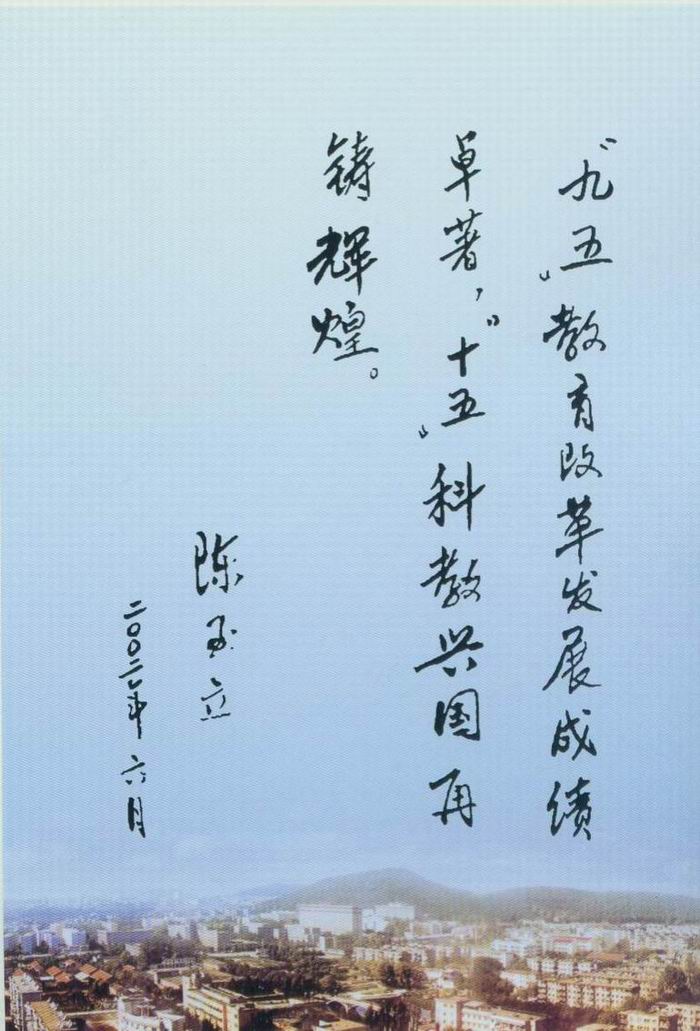 “九五”教育改革发展成绩
卓著，“十五”科教兴国再
铸辉煌。
陈至立
二〇〇二年六月